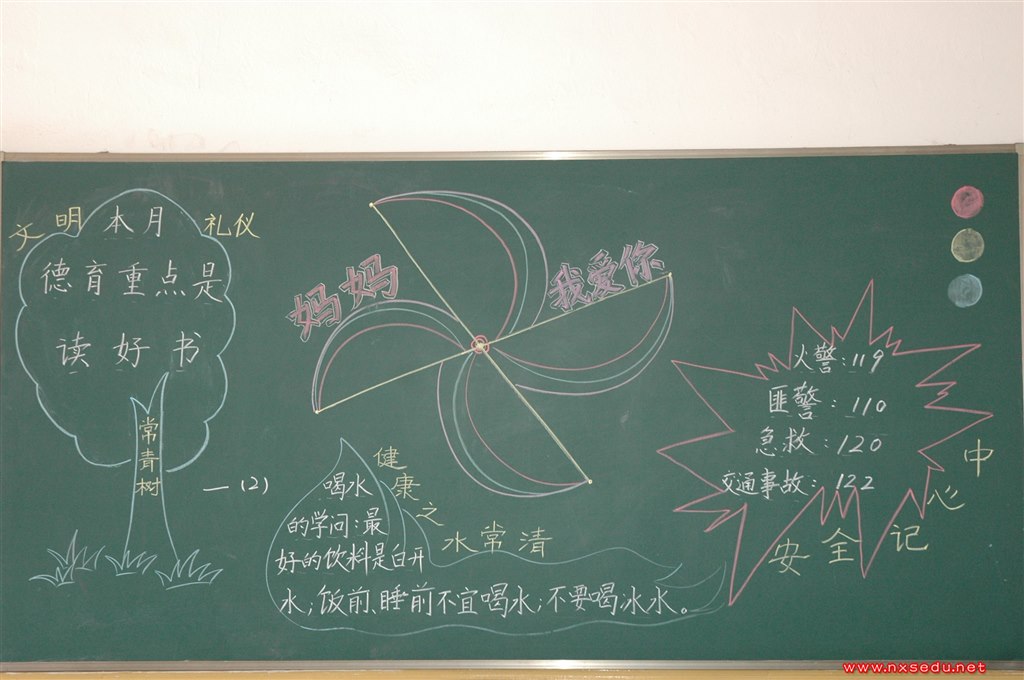 文明 本月 礼仪
德育重点是
读好书
常青树
一(2)
妈妈
我爱你
健康之
水常清
喝水
的学问:最
好的饮料是白开
水;饭前、睡前不宜喝水;不要喝冰水。
火警:119
匪警:110
急救:120
交通事故:122
安全记心中
www.nxsedu.net